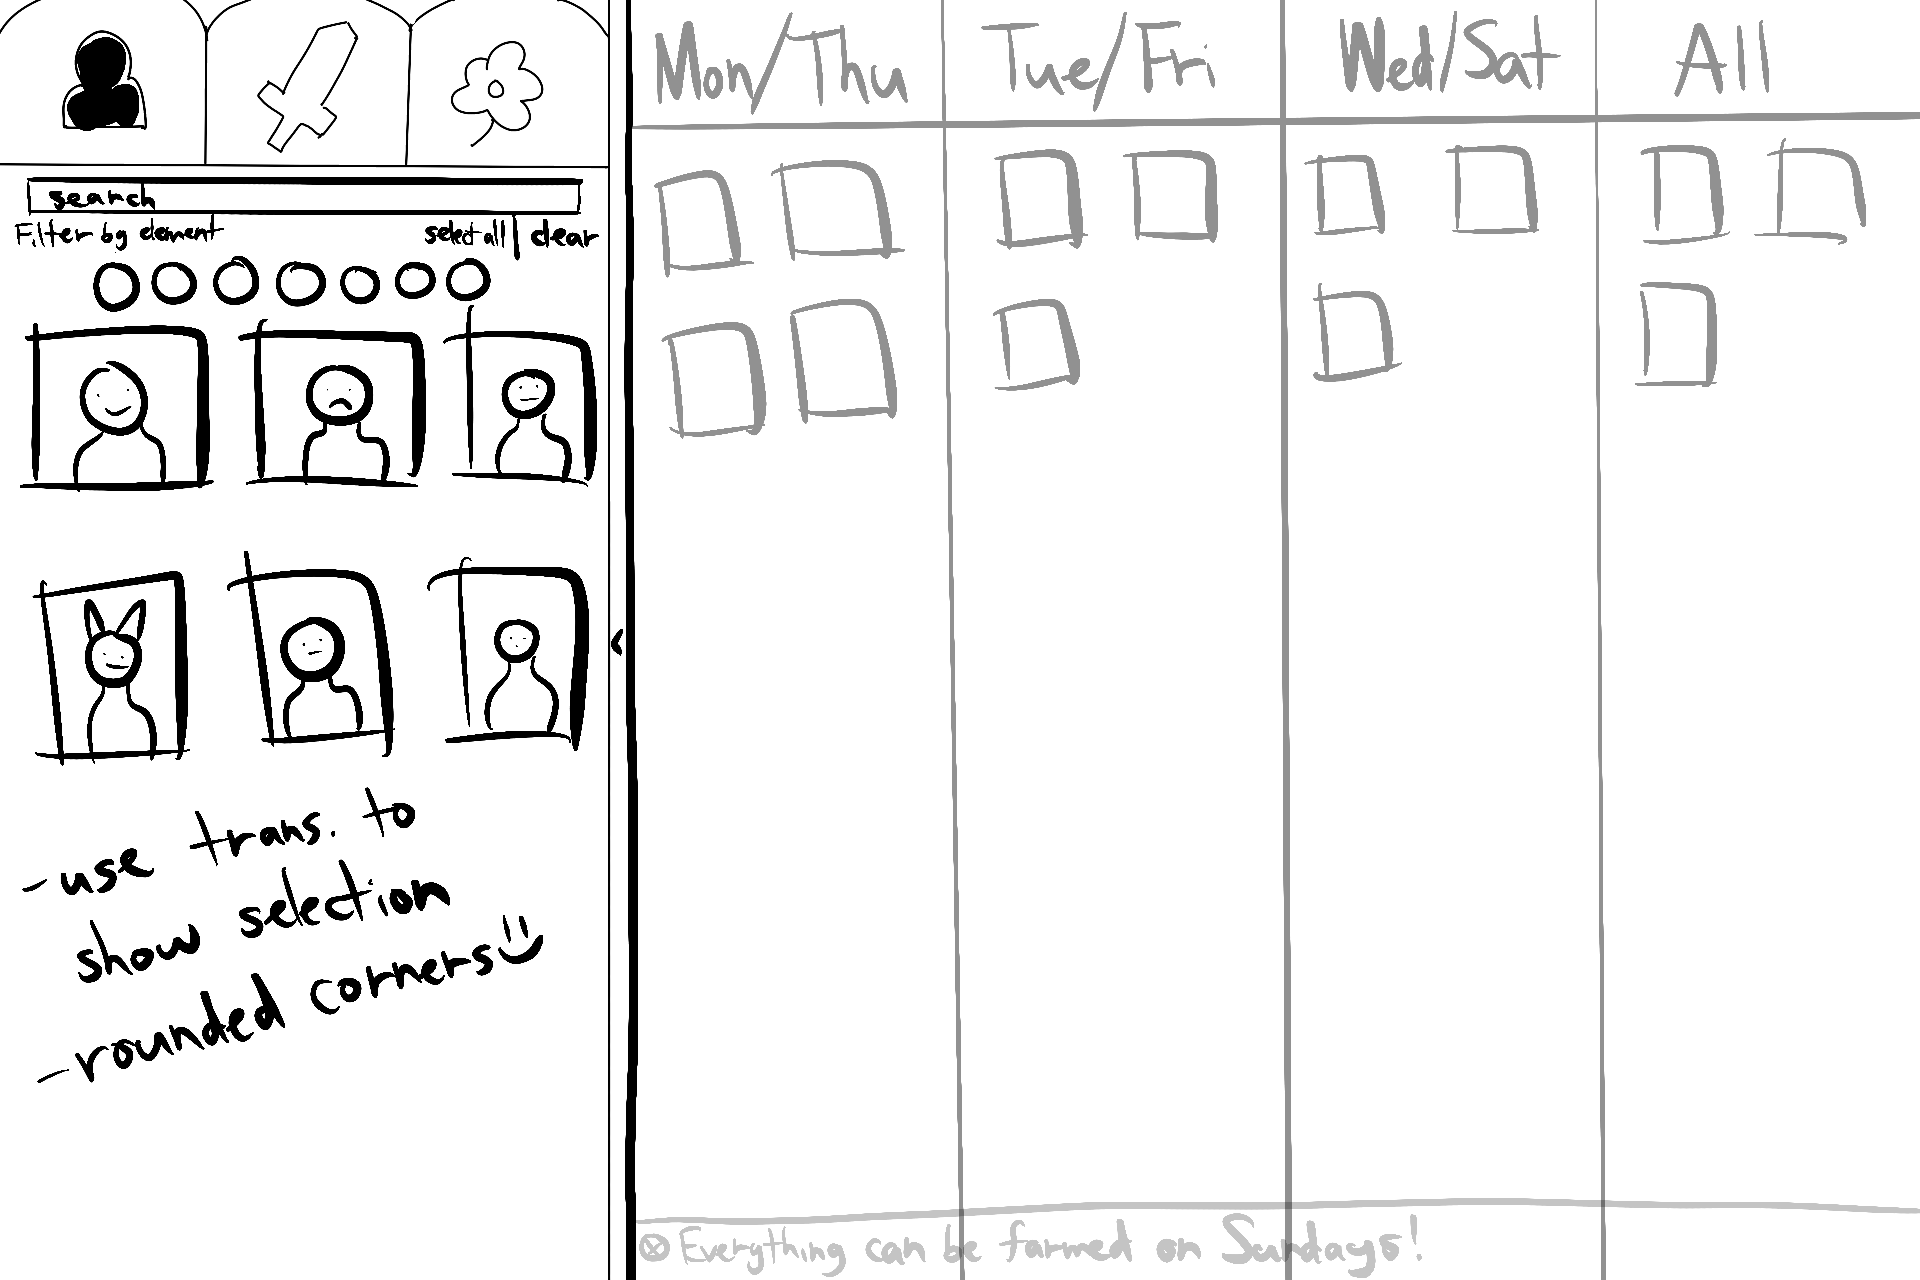 search
Filter by element
select all | clear
- use trans. to
show selection
- rounded corners
Mon/Thu
Tue/Fri
Wed/Sat
All
Everything can be farmed on Sundays!